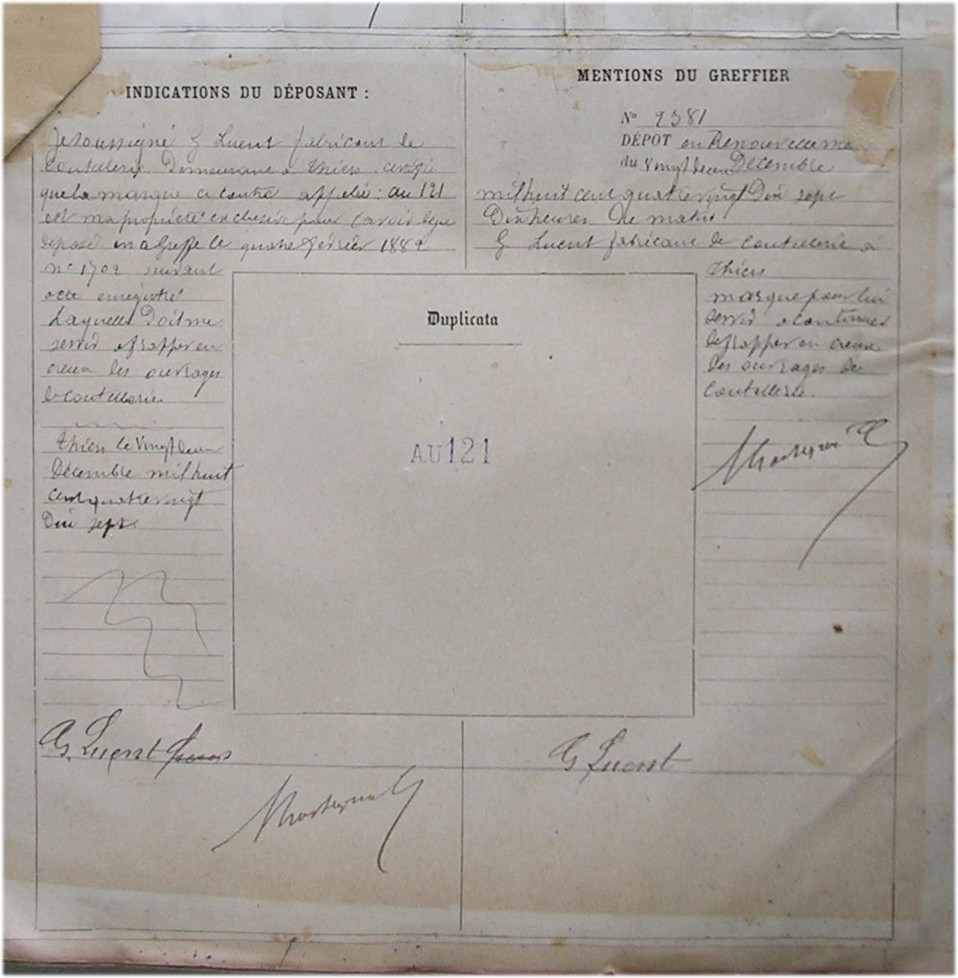 INDICATIONS DU DÉPOSANT :
Je soussigné G Luent fabricant de
coutellerie Demeurant a Thiers certifie
que la marque ci contre appelée : au 121
est ma propriété exclusive pour l'avoir
déposé au Greffe le quatre février 188
suivant
acte enregistré
Laquelle Doit me
servir a frapper en
creux les ouvrages
de coutellerie
Thiers le Vingt deux
Décembre mil huit
cent quatre vingt
Dix sept
MENTIONS DU GREFFIER
N° 2381
DÉPOT en Renouvelleme
du Vingt deux Décembre
mil huit cent quatre vingt Dix sept
Dix heures du matin
G Luent fabricant de coutellerie a
Thiers
marque pour lui
servir a continuer
de frapper en creux
les ouvrages de
coutellerie.
Duplicata
AU 121
G. Luent
G Luent